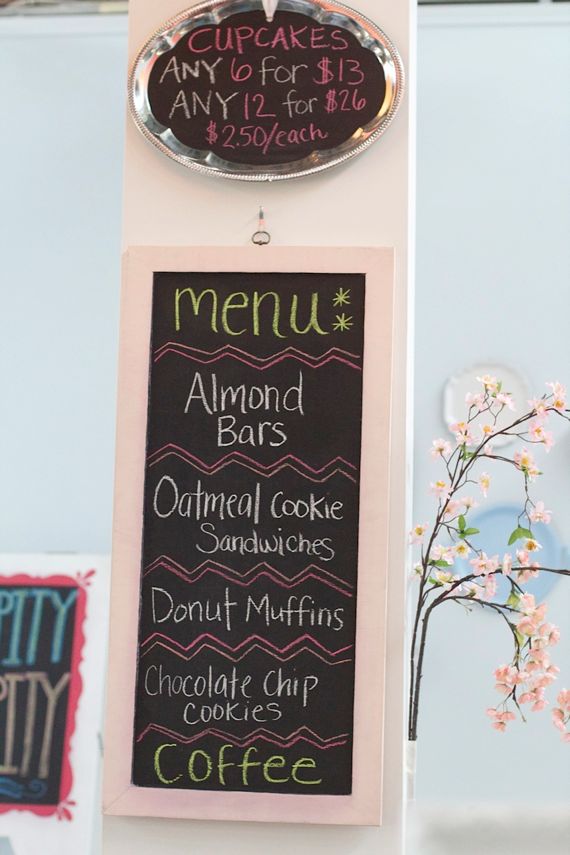 CUPCAKES
ANY 6 for $13
ANY 12 for $26
$2.50/each
menu:
Almond
Bars
Oatmeal Cookie
Sandwiches
Donut Muffins
Chocolate Chip
cookies
Coffee
PITY
PITY